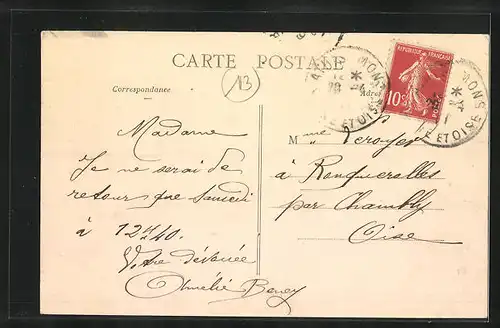 CARTE POSTALE
13
Correspondance
Adre
RÉPUBLIQUE FRANÇAISE
10c
POSTES
MONS
ET OISE
MONS
ET OISE
Madame
Je ne serai de
retour que samedi
à 12h40.
Votre dévouée
Amélie
Mme
à Ronquerolles
par Chambly
Oise